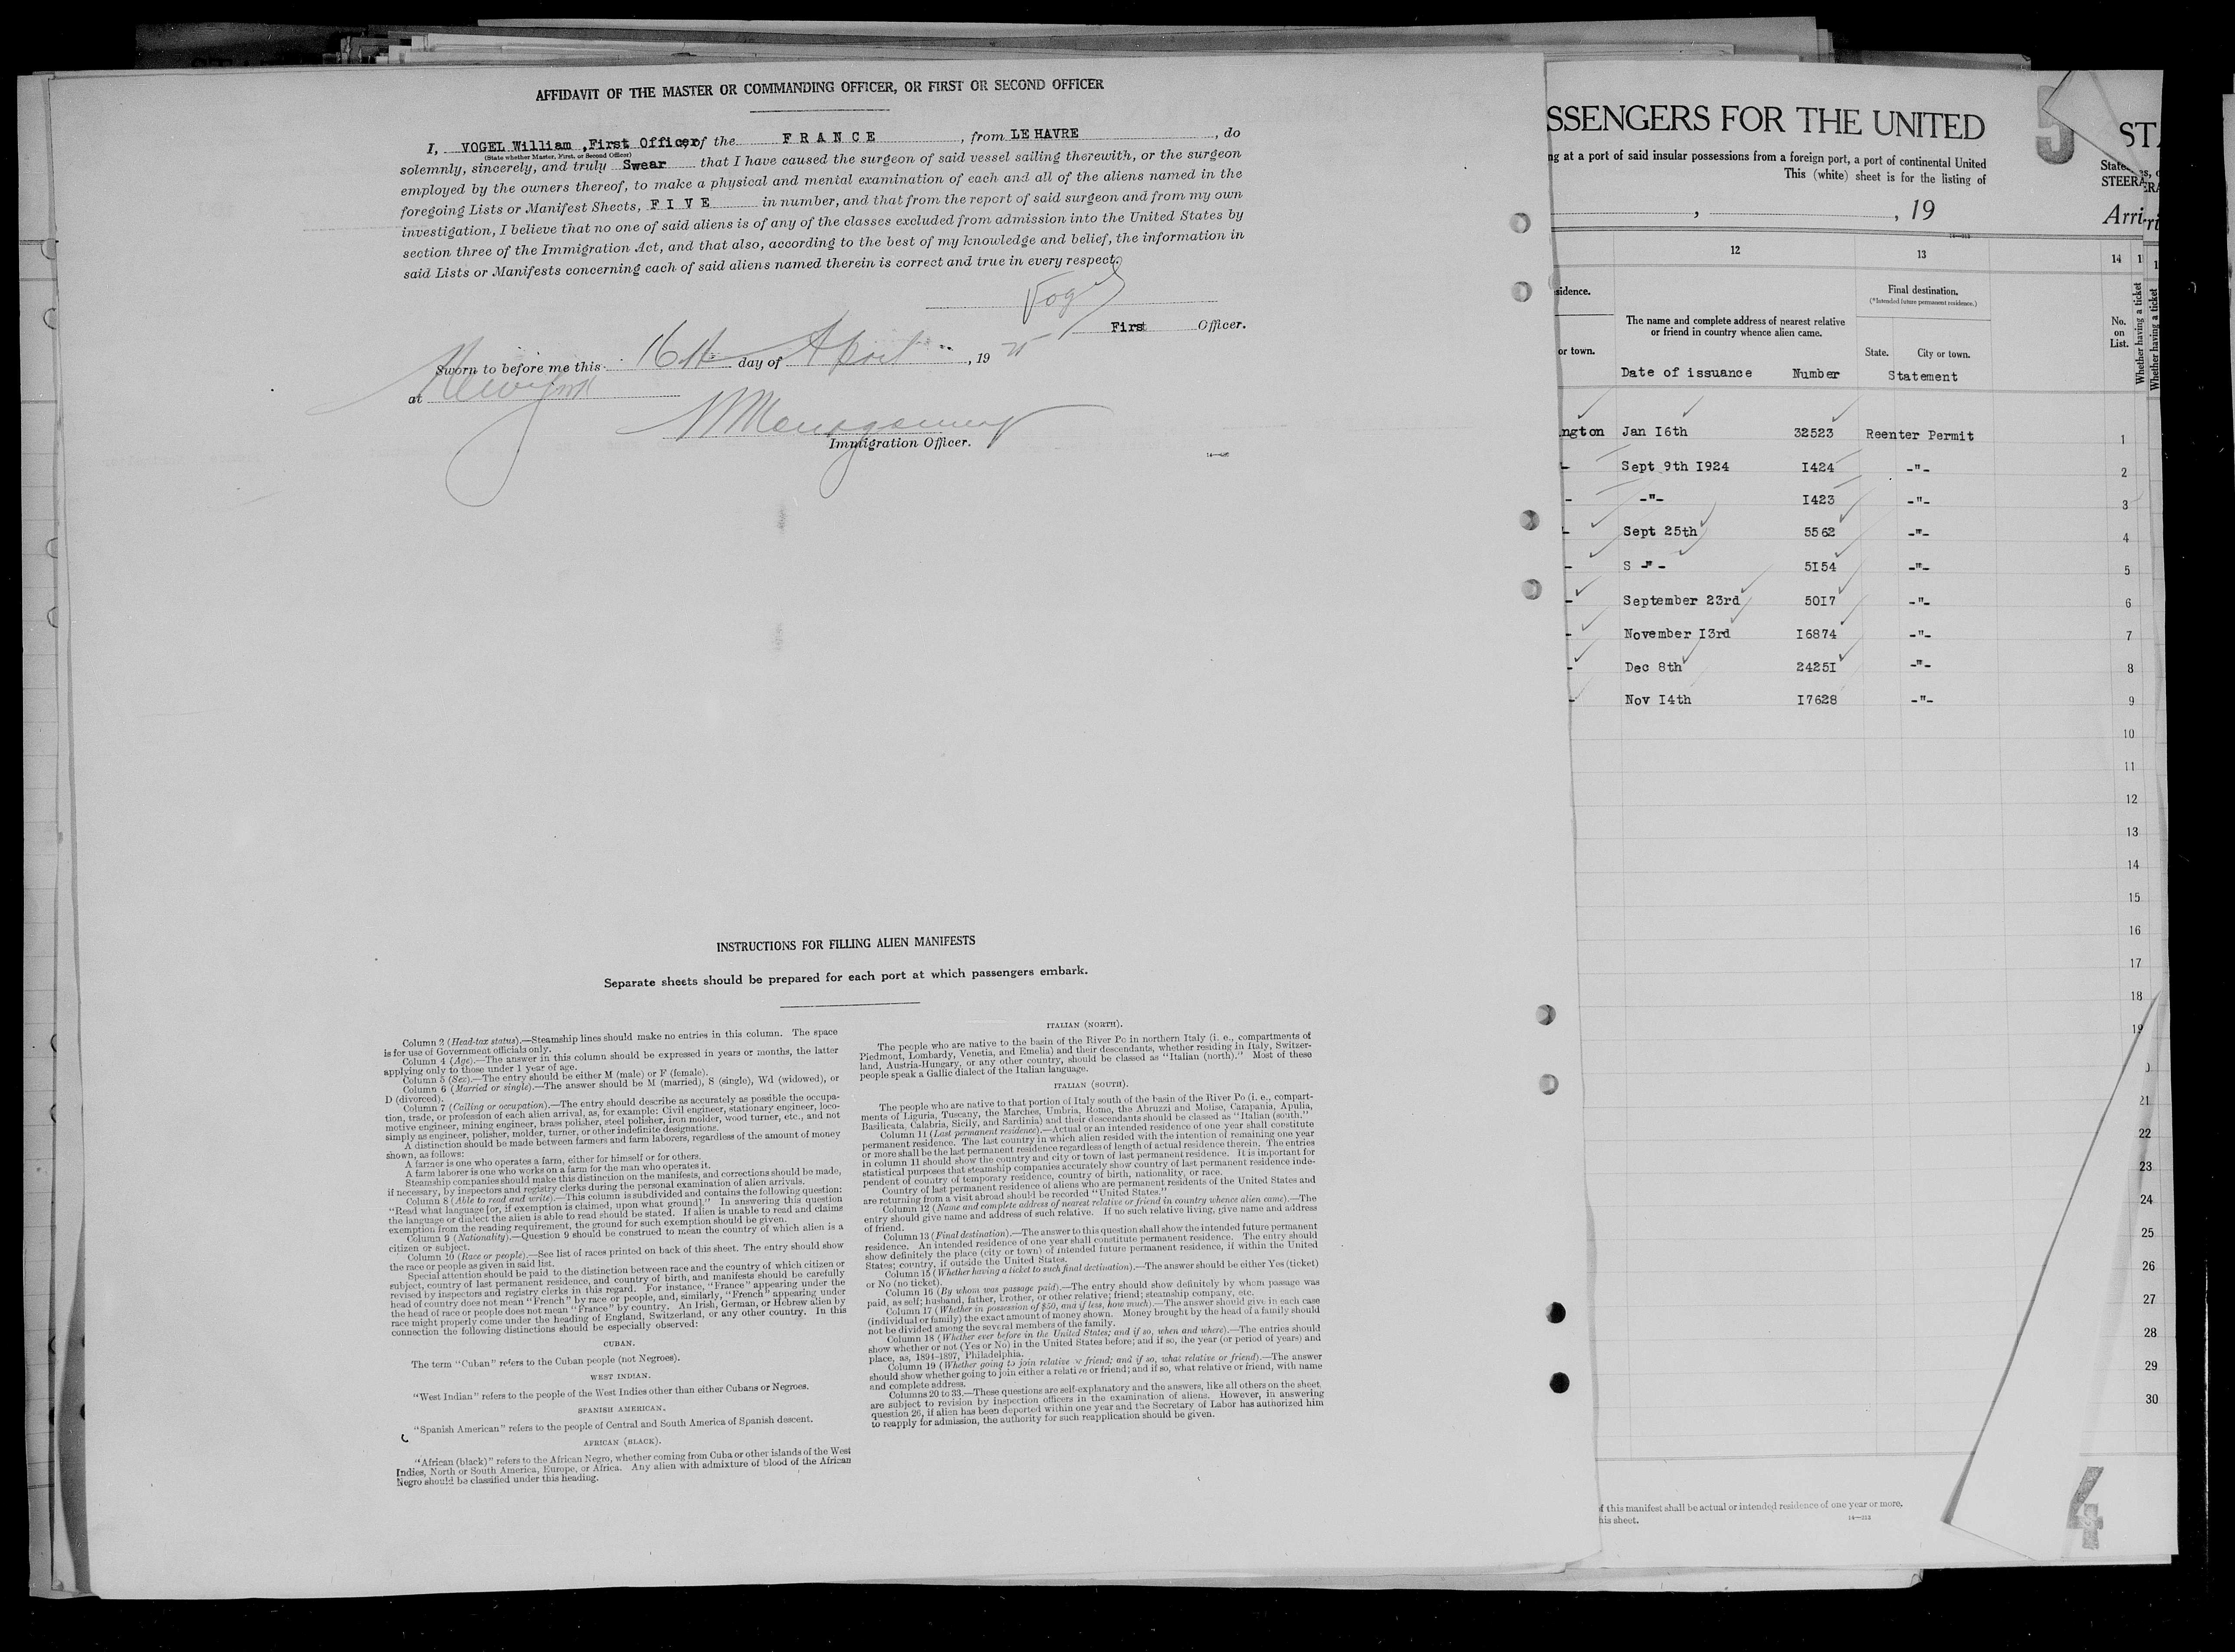 AFFIDAVIT OF THE MASTER OR COMMANDING OFFICER, OR FIRST OR SECOND OFFICER
I, VOGEL William ,First Officer of the F R A N C E , from LE HAVRE , do
(State whether Master, First, or Second Officer)
solemnly, sincerely, and truly Swear that I have caused the surgeon of said vessel sailing therewith, or the surgeon
employed by the owners thereof, to make a physical and mental examination of each and all of the aliens named in the
foregoing Lists or Manifest Sheets, F I V E in number, and that from the report of said surgeon and from my own
investigation, I believe that no one of said aliens is of any of the classes excluded from admission into the United States by
section three of the Immigration Act, and that also, according to the best of my knowledge and belief, the information in
said Lists or Manifests concerning each of said aliens named therein is correct and true in every respect.
Vogel
First Officer.
Sworn to before me this 16th day of April , 19 25
at New York
Immigration Officer.
INSTRUCTIONS FOR FILLING ALIEN MANIFESTS
Separate sheets should be prepared for each port at which passengers embark.
Column 2 (Head-tax status).—Steamship lines should make no entries in this column. The space
is for use of Government officials only.
Column 4 (Age).—The answer in this column should be expressed in years or months, the latter
applying only to those under 1 year of age.
Column 5 (Sex).—The entry should be either M (male) or F (female).
Column 6 (Married or single).—The answer should be M (married), S (single), Wd (widowed), or
D (divorced).
Column 7 (Calling or occupation).—The entry should describe as accurately as possible the occupa-
tion, trade, or profession of each alien arrival, as, for example: Civil engineer, stationary engineer, loco-
motive engineer, mining engineer, brass polisher, steel polisher, iron molder, wood turner, etc., and not
simply as engineer, polisher, molder, turner, or other indefinite designations.
A distinction should be made between farmers and farm laborers, regardless of the amount of money
shown, as follows:
A farmer is one who operates a farm, either for himself or for others.
A farm laborer is one who works on a farm for the man who operates it.
Steamship companies should make this distinction on the manifests, and corrections should be made,
if necessary, by inspectors and registry clerks during the personal examination of alien arrivals.
Column 8 (Able to read and write).—This column is subdivided and contains the following question:
"Read what language [or, if exemption is claimed, upon what ground]." In answering this question
the language or dialect the alien is able to read should be stated. If alien is unable to read and claims
exemption from the reading requirement, the ground for such exemption should be given.
Column 9 (Nationality).—Question 9 should be construed to mean the country of which alien is a
citizen or subject.
Column 10 (Race or people).—See list of races printed on back of this sheet. The entry should show
the race or people as given in said list.
Special attention should be paid to the distinction between race and the country of which citizen or
subject, country of last permanent residence, and country of birth, and manifests should be carefully
revised by inspectors and registry clerks in this regard. For instance, "France" appearing under the
head of country does not mean "French" by race or people, and, similarly, "French" appearing under
the head of race or people does not mean "France" by country. An Irish, German, or Hebrew alien by
race might properly come under the heading of England, Switzerland, or any other country. In this
connection the following distinctions should be especially observed:
CUBAN.
The term "Cuban" refers to the Cuban people (not Negroes).
WEST INDIAN.
"West Indian" refers to the people of the West Indies other than either Cubans or Negroes.
SPANISH AMERICAN.
"Spanish American" refers to the people of Central and South America of Spanish descent.
AFRICAN (BLACK).
"African (black)" refers to the African Negro, whether coming from Cuba or other islands of the West
Indies, North or South America, Europe, or Africa. Any alien with admixture of blood of the African
Negro should be classified under this heading.
ITALIAN (NORTH).
The people who are native to the basin of the River Po in northern Italy (i. e., compartments of
Piedmont, Lombardy, Venetia, and Emelia) and their descendants, whether residing in Italy, Switzer-
land, Austria-Hungary, or any other country, should be classed as "Italian (north)." Most of these
people speak a Gallic dialect of the Italian language.
ITALIAN (SOUTH).
The people who are native to that portion of Italy south of the basin of the River Po (i. e., compart-
ments of Liguria, Tuscany, the Marches, Umbria, Rome, the Abruzzi and Molise, Campania, Apulia,
Basilicata, Calabria, Sicily, and Sardinia) and their descendants should be classed as "Italian (south."
Column 11 (Last permanent residence).—Actual or an intended residence of one year shall constitute
permanent residence. The last country in which alien resided with the intention of remaining one year
or more shall be the last permanent residence regardless of length of actual residence therein. The entries
in column 11 should show the country and city or town of last permanent residence. It is important for
statistical purposes that steamship companies accurately show country of last permanent residence inde-
pendent of country of temporary residence, country of birth, nationality, or race.
Country of last permanent residence of aliens who are permanent residents of the United States and
are returning from a visit abroad should be recorded "United States."
Column 12 (Name and complete address of nearest relative or friend in country whence alien came).—The
entry should give name and address of such relative. If no such relative living, give name and address
of friend.
Column 13 (Final destination).—The answer to this question shall show the intended future permanent
residence. An intended residence of one year shall constitute permanent residence. The entry should
show definitely the place (city or town) of intended future permanent residence, if within the United
States; country, if outside the United States.
Column 15 (Whether having a ticket to such final destination).—The answer should be either Yes (ticket)
or No (no ticket).
Column 16 (By whom was passage paid).—The entry should show definitely by whom passage was
paid, as self; husband, father, brother, or other relative; friend; steamship company, etc.
Column 17 (Whether in possession of $50, and if less, how much).—The answer should give in each case
(individual or family) the exact amount of money shown. Money brought by the head of a family should
not be divided among the several members of the family.
Column 18 (Whether ever before in the United States; and if so, when and where).—The entries should
show whether or not (Yes or No) in the United States before; and if so, the year (or period of years) and
place, as, 1894-1897, Philadelphia.
Column 19 (Whether going to join relative or friend; and if so, what relative or friend).—The answer
should show whether going to join either a relative or friend; and if so, what relative or friend, with name
and complete address.
Columns 20 to 33.—These questions are self-explanatory and the answers, like all others on the sheet,
are subject to revision by inspection officers in the examination of aliens. However, in answering
question 26, if alien has been deported within one year and the Secretary of Labor has authorized him
to reapply for admission, the authority for such reapplication should be given.
SSENGERS FOR THE UNITED
ng at a port of said insular possessions from a foreign port, a port of continental United
This (white) sheet is for the listing of
, , 19
12 13
sidence.
Final destination.
(*Intended future permanent residence.)
The name and complete address of nearest relative
or friend in country whence alien came.
or town. State. City or town.
Date of issuance Number Statement
ngton Jan I6th 32523 Reenter Permit
- Sept 9th I924 I424 -"-
- -"- I423 -"-
- Sept 25th 5562 -"-
- S -"- 5I54 -"-
- September 23rd 50I7 -"-
- November I3rd I6874 -"-
- Dec 8th 2425I -"-
- Nov I4th I7628 -"-
f this manifest shall be actual or intended residence of one year or more.
his sheet.
14—313
5
STA
State
STEERA
Arri
14
No.
on
List.
Whether having a ticket
Whether having a ticket
1
2
3
4
5
6
7
8
9
10
11
12
13
14
15
16
17
18
19
21
22
23
24
25
26
27
28
29
30
4